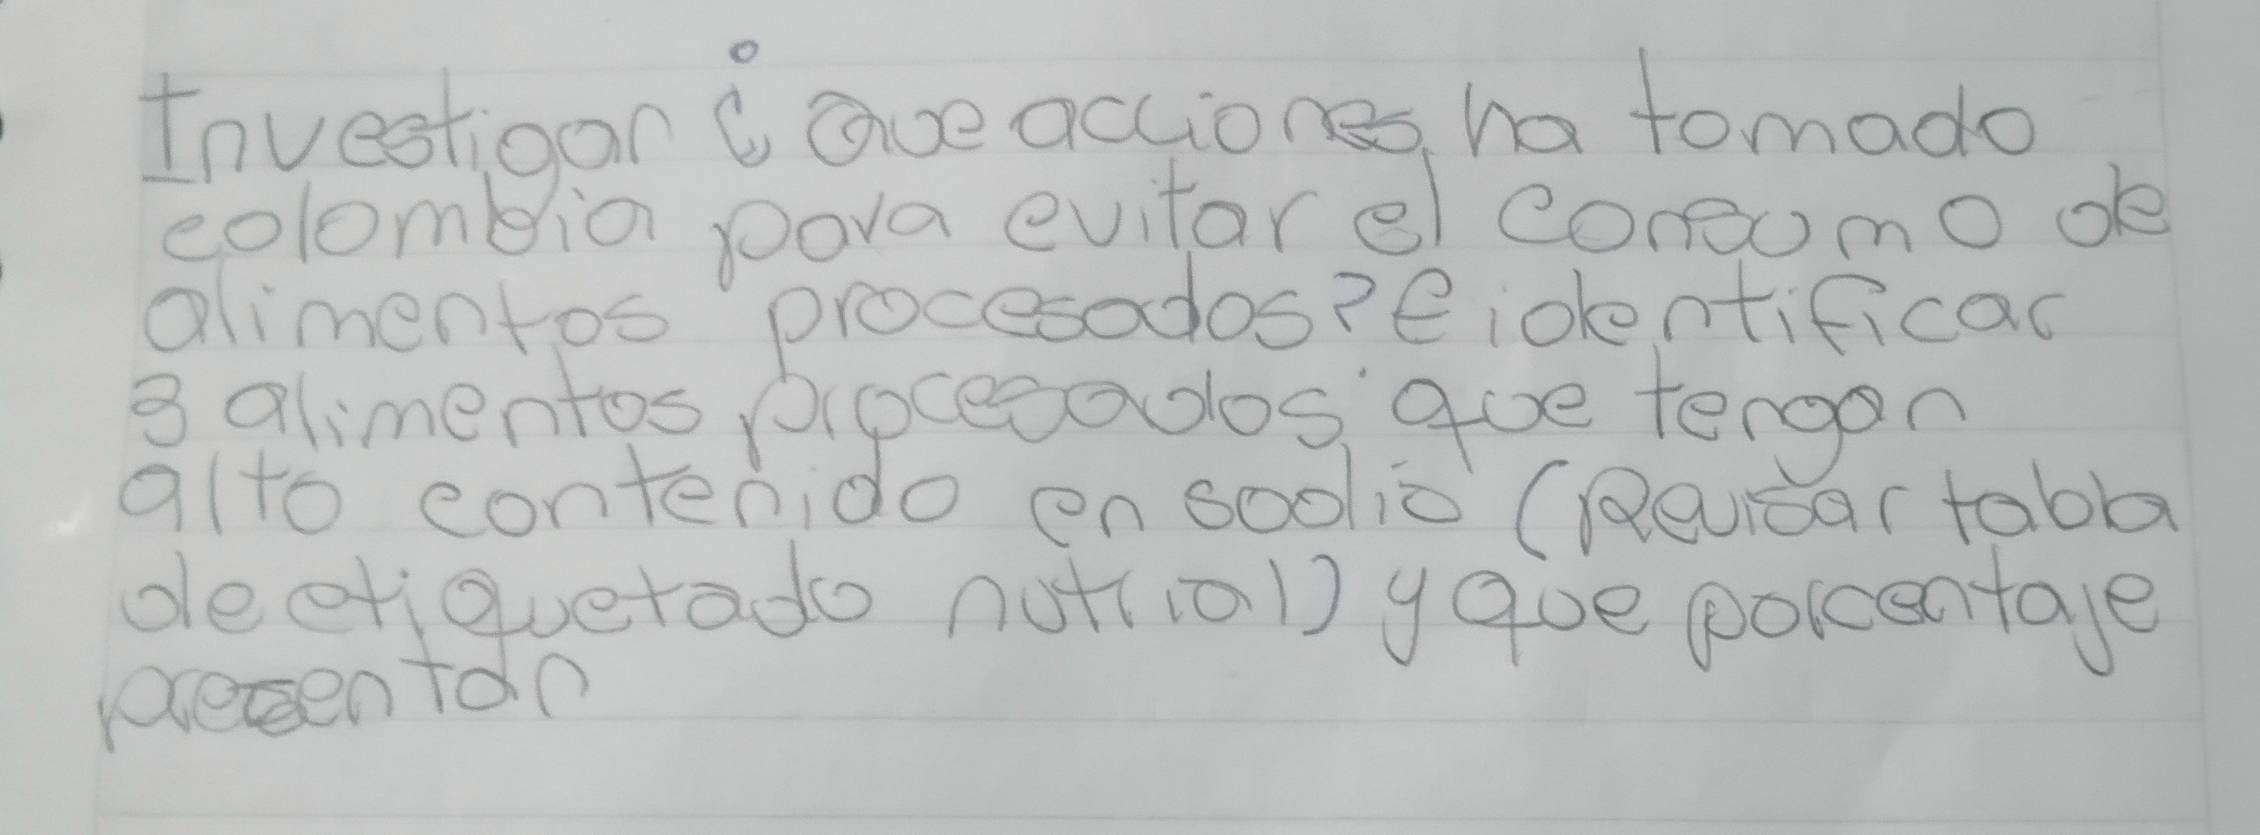 Investigar ¿ Que acciones ha tomado
colombia para evitar el consumo de
alimentos procesados? E identificar
3 alimentos procesados que tengan
alto contenido en sodio (Revisar tabla
de etiquetado nutrial) y que porcentaje
presentan